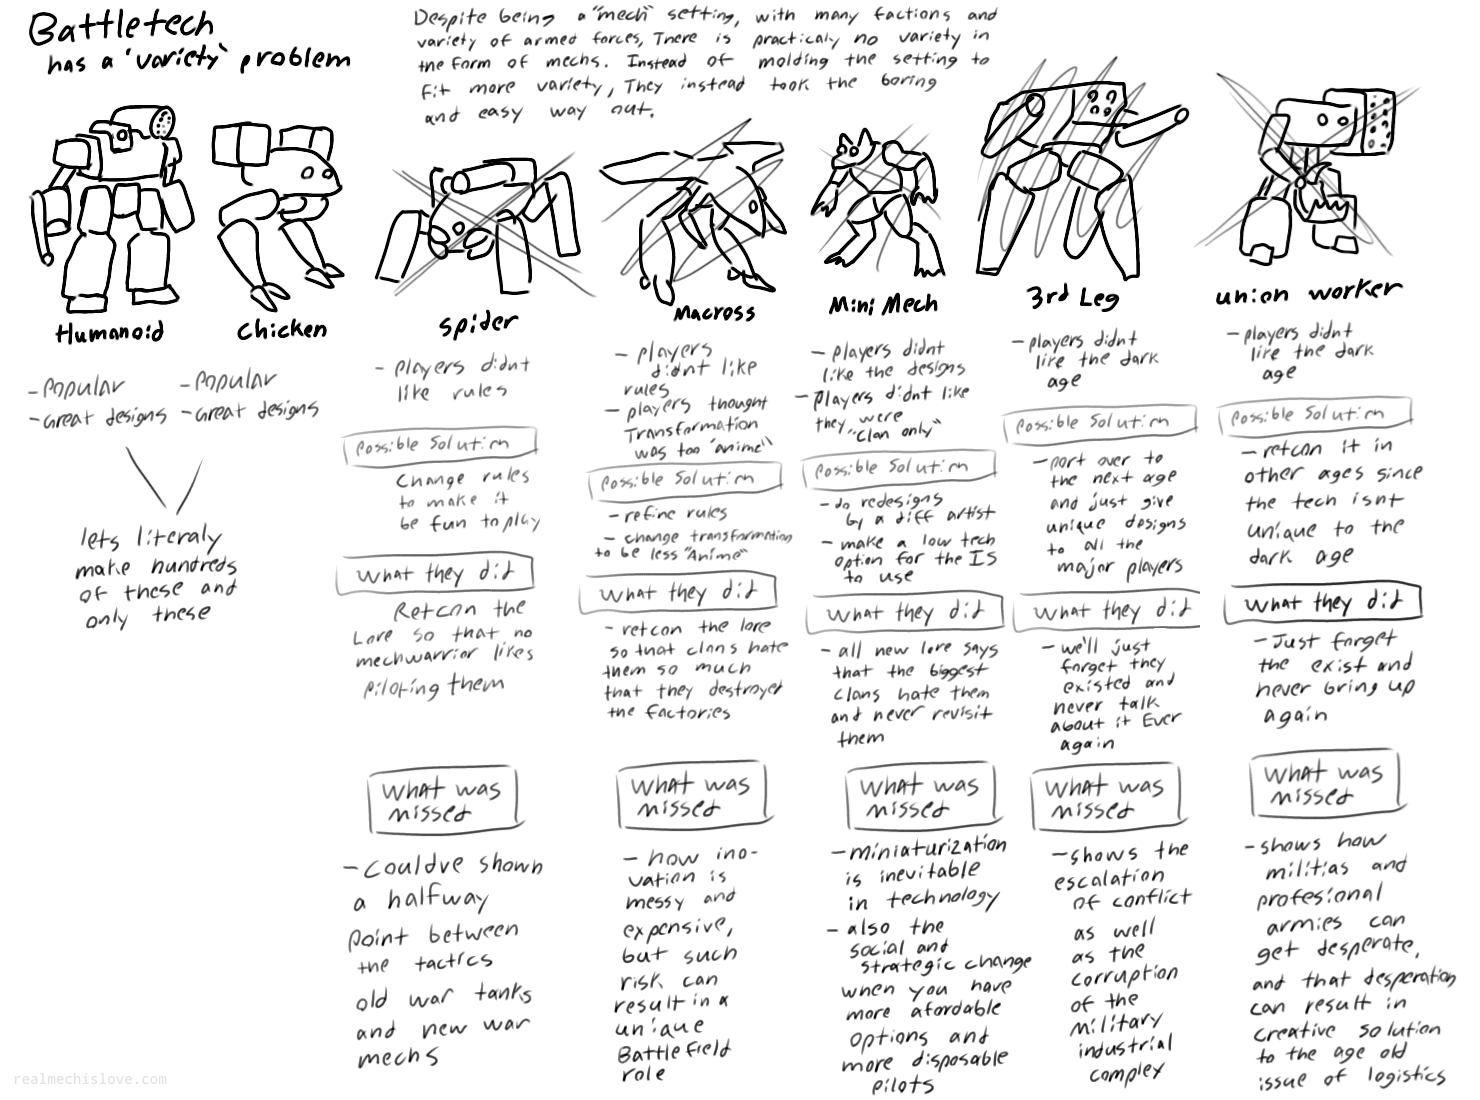 Battletech
has a 'variety' problem
Despite being a "mech" setting, with many factions and
variety of armed forces, There is practicaly no variety in
the form of mechs. Instead of molding the setting to
fit more variety, They instead took the boring
and easy way out.
Humanoid
- Popular
- Great designs
Chicken
- Popular
- Great designs
lets literaly
make hundreds
of these and
only these
Spider
- players didnt
like rules
Possible Solution
Change rules
to make it
be fun to play
What they did
Retcon the
Lore so that no
mechwarrior likes
piloting them
What was
missed
- Couldve shown
a halfway
point between
the tactics
old war tanks
and new war
mechs
Macross
- players
didnt like
rules
- players thought
Transformation
was too "anime"
Possible Solution
- refine rules
- change transformation
to be less "Anime"
What they did
- retcon the lore
so that clans hate
them so much
that they destroyed
the factories
What was
missed
- how ino-
vation is
messy and
expensive,
but such
risk can
result in a
unique
Battlefield
role
Mini Mech
- players didnt
like the designs
- players didnt like
they were
"Clan only"
Possible Solution
- do redesigns
by a diff artist
- make a low tech
option for the IS
to use
What they did
- all new lore says
that the biggest
clans hate them
and never revisit
them
What was
missed
- miniaturization
is inevitable
in technology
- also the
social and
strategic change
when you have
more afordable
options and
more disposable
pilots
3rd Leg
- players didnt
lire the dark
age
Possible Solution
- port over to
the next age
and just give
unique designs
to all the
major players
What they did
- we'll just
forget they
existed and
never talk
about it Ever
again
What was
missed
- shows the
escalation
of conflict
as well
as the
corruption
of the
military
industrial
complex
union worker
- players didnt
lire the dark
age
Possible Solution
- retcon it in
other ages since
the tech isnt
unique to the
dark age
What they did
- Just forget
the exist and
never bring up
again
What was
missed
- shows how
militias and
profesional
armies can
get desperate,
and that desperation
can result in
creative solution
to the age old
issue of logistics
realmechislove.com